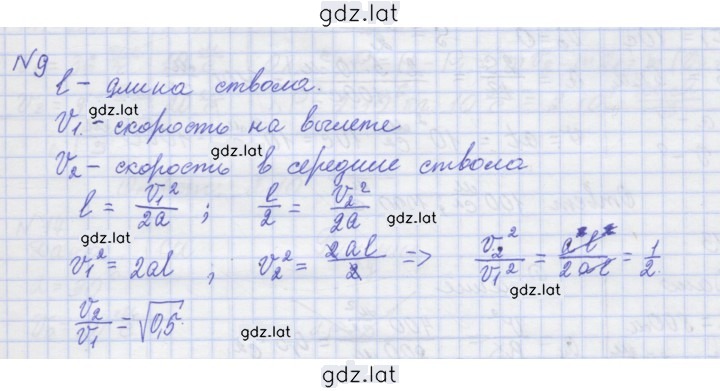 gdz.lat
№9
l - длина ствола.
gdz.lat
V₁ - скорость на вылете
gdz.lat
V₂ - скорость в середине ствола
l = V₁²/2a ; l/2 = V₂²/2a
gdz.lat
gdz.lat
V₁² = 2al , V₂² = 2al/2 => V₂²/V₁² = al/2al = 1/2
gdz.lat
V₂/V₁ = √0,5.
gdz.lat
gdz.lat